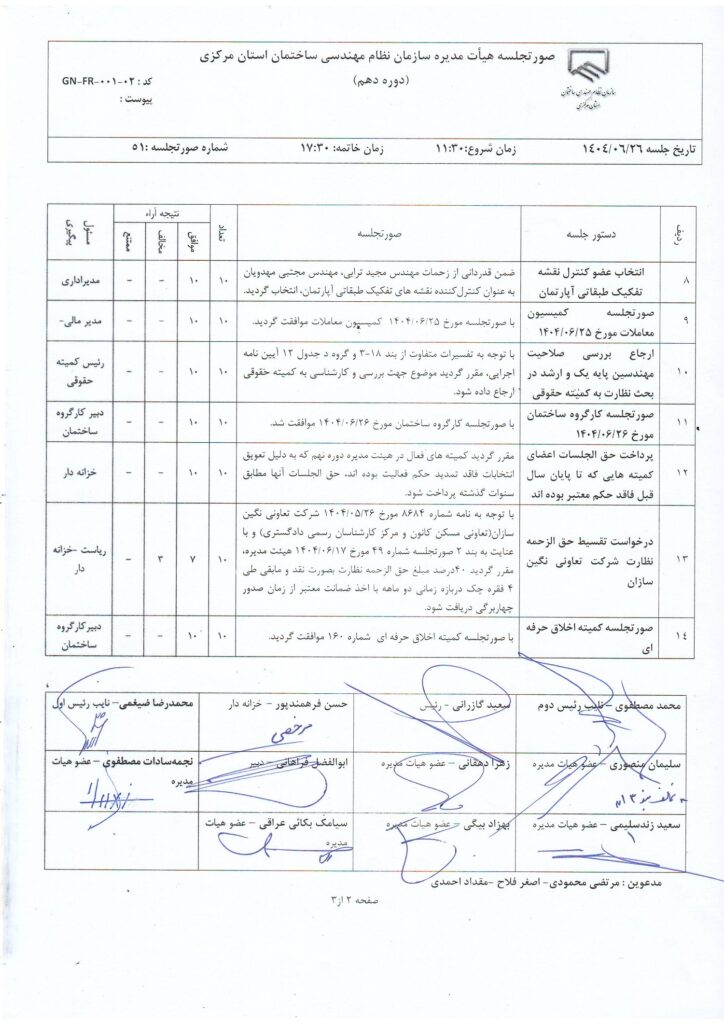 صورتجلسه هیأت مدیره سازمان نظام مهندسی ساختمان استان مرکزی
(دوره دهم)
سازمان نظام مهندسی ساختمان
استان مرکزی
کد : GN-FR-۰۰۱-۰۲
پیوست :
تاریخ جلسه ۱۴۰۴/۰۶/۲۶ زمان شروع:۱۱:۳۰ زمان خاتمه: ۱۷:۳۰ شماره صورتجلسه :۵۱
ردیف دستور جلسه صورتجلسه تعداد نتیجه آراء مسئول پیگیری
موافق مخالف ممتنع
۸ انتخاب عضو کنترل نقشه تفکیک طبقاتی آپارتمان
ضمن قدردانی از زحمات مهندس مجید ترابی، مهندس مجتبی مهدویان
به عنوان کنترل‌کننده نقشه های تفکیک طبقاتی آپارتمان، انتخاب گردید.
۱۰ ۱۰ – – مدیراداری
۹ صورتجلسه کمیسیون معاملات مورخ ۱۴۰۴/۰۶/۲۵
با صورتجلسه مورخ ۱۴۰۴/۰۶/۲۵ کمیسیون معاملات موافقت گردید.
۱۰ ۱۰ – – مدیر مالی-
۱۰ ارجاع بررسی صلاحیت مهندسین پایه یک و ارشد در بحث نظارت به کمیته حقوقی
با توجه به تفسیرات متفاوت از بند ۱۸-۳ و گروه د جدول ۱۲ آیین نامه
اجرایی، مقرر گردید موضوع جهت بررسی و کارشناسی به کمیته حقوقی
ارجاع داده شود.
۱۰ ۱۰ – – رئیس کمیته حقوقی
۱۱ صورتجلسه کارگروه ساختمان مورخ ۱۴۰۴/۰۶/۲۶
با صورتجلسه کارگروه ساختمان مورخ ۱۴۰۴/۰۶/۲۶ موافقت شد.
۱۰ ۱۰ – – دبیر کارگروه ساختمان
۱۲ پرداخت حق الجلسات اعضای کمیته هایی که تا پایان سال قبل فاقد حکم معتبر بوده اند
مقرر گردید کمیته های فعال در هیئت مدیره دوره نهم که به دلیل تعویق
انتخابات فاقد تمدید حکم فعالیت بوده اند، حق الجلسات آنها مطابق
سنوات گذشته پرداخت شود.
۱۰ ۱۰ – – خزانه دار
۱۳ درخواست تقسیط حق الزحمه نظارت شرکت تعاونی نگین سازان
با توجه به نامه شماره ۸۶۸۴ مورخ ۱۴۰۴/۰۵/۲۶ شرکت تعاونی نگین
سازان(تعاونی مسکن کانون و مرکز کارشناسان رسمی دادگستری) و با
عنایت به بند ۲ صورتجلسه شماره ۴۹ مورخ ۱۴۰۴/۰۶/۱۷ هیئت مدیره،
مقرر گردید ۴۰درصد مبلغ حق الزحمه نظارت بصورت نقد و مابقی طی
۴ فقره چک دربازه زمانی دو ماهه با اخذ ضمانت معتبر از زمان صدور
چهاربرگی دریافت شود.
۱۰ ۷ ۳ – ریاست -خزانه دار
۱۴ صورتجلسه کمیته اخلاق حرفه ای
با صورتجلسه کمیته اخلاق حرفه ای شماره ۱۶۰ موافقت گردید.
۱۰ ۱۰ – – دبیرکارگروه ساختمان
محمد مصطفوی – نایب رئیس دوم سعید گازرانی - رئیس حسن فرهمندپور - خزانه دار محمدرضا ضیغمی– نایب رئیس اول
مرخصی
سلیمان منصوری – عضو هیات مدیره زهرا دهقانی – عضو هیات مدیره ابوالفضل فراهانی – دبیر نجمه‌سادات مصطفوی – عضو هیات مدیره
سعید زندسلیمی – عضو هیات مدیره بهزاد بیگی – عضو هیات مدیره سیامک بکائی عراقی – عضو هیات مدیره
مدعوین : مرتضی محمودی- اصغر فلاح -مقداد احمدی
صفحه ۲ از۳